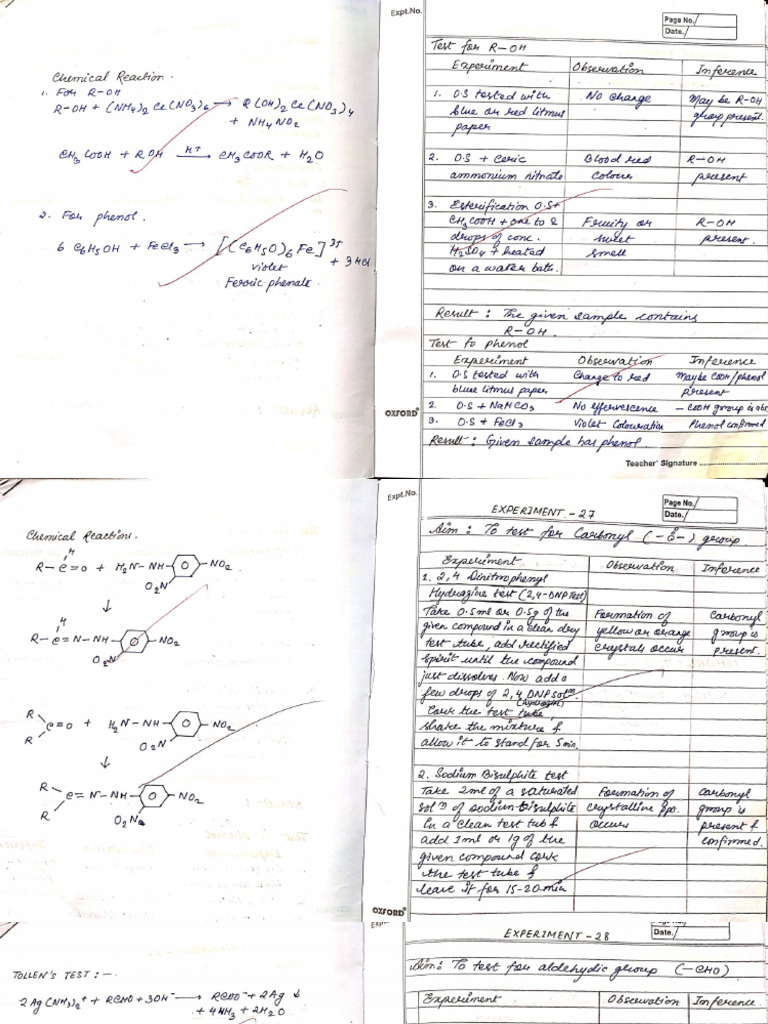 Chemical Reaction.
1. For R-OH
R-OH + (NH4)2 Ce(NO3)6 → R(OH)2 Ce(NO3)4
+ NH4NO2
CH3COOH + ROH H+→ CH3COOR + H2O
2. For phenol.
6 C6H5OH + FeCl3 → [(C6H5O)6Fe]
+ 3HCl
violet
Ferric phenate.
Expt.No.
Page No./
Date./
Test for R-OH
Experiment Observation Inference
1. O.S tested with No change May be R-OH
blue or red litmus group present.
paper
2. O.S + Ceric Blood red R-OH
ammonium nitrate Colour present
3. Esterification O.S+
CH3COOH + one to 2 Fruity or R-OH
drops of conc. sweet present.
H2SO4 + heated smell
on a water bath.
Result : The given sample contains
R-OH.
Test fo phenol
Experiment Observation Inference
1. O.S tested with Change to red Maybe COOH/phenol
blue litmus paper present
2. O.S + NaHCO3 No effervescence - COOH group is abs
3. O.S + FeCl3 Violet Colouration Phenol confirmed
Result : Given sample has phenol.
OXFORD
Teacher' Signature
Chemical Reactions.
H
R-C=O + H2N-NH- -NO2
O2N
↓
H
R-C=N-NH- -NO2
O2N
R
C=O + H2N-NH- -NO2
R O2N
↓
R
C=N-NH- -NO2
R O2N
Expt.No.
Page No./
Date./
EXPERIMENT - 27
Aim : To test for Carbonyl (-C-) group
Experiment Observation Inference
1. 2,4 Dinitrophenyl
Hydrazine test (2,4-DNP Test)
Take 0.5ml or 0.5g of the Formation of Carbonyl
given compound in a clean dry yellow or orange group is
test tube, add rectified crystals occur present.
spirit until the compound
just dissolves. Now add a
few drops of 2,4 DNP soln
Cork the test tube,
shake the mixture &
allow it to stand for 5 min.
2. Sodium Bisulphite test
Take 2ml of a saturated Formation of Carbonyl
soln of sodium bisulphite crystalline ppt. group is
in a clean test tub & occurs present &
add 1ml or 1g of the confirmed.
given compound cork
the test tube &
leave it for 15-20 min
OXFORD
TOLLEN'S TEST : -
2 Ag(NH3)2+ + RCHO + 3OH- → RCOO- + 2Ag ↓
+ 4NH3 + 2H2O
Date./
EXPERIMENT - 28
Aim: To test for aldehydic group (-CHO)
Experiment Observation Inference.